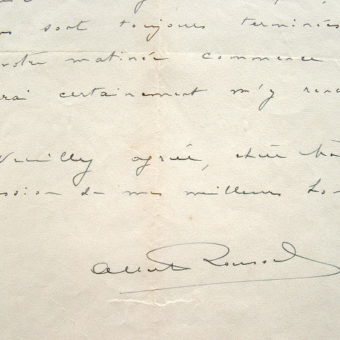 s sont toujours terminés
votre matinée commence
rai certainement m'y ren
Veuillez agréer, chère
ssion de mes meilleurs ho
Albert Roussel